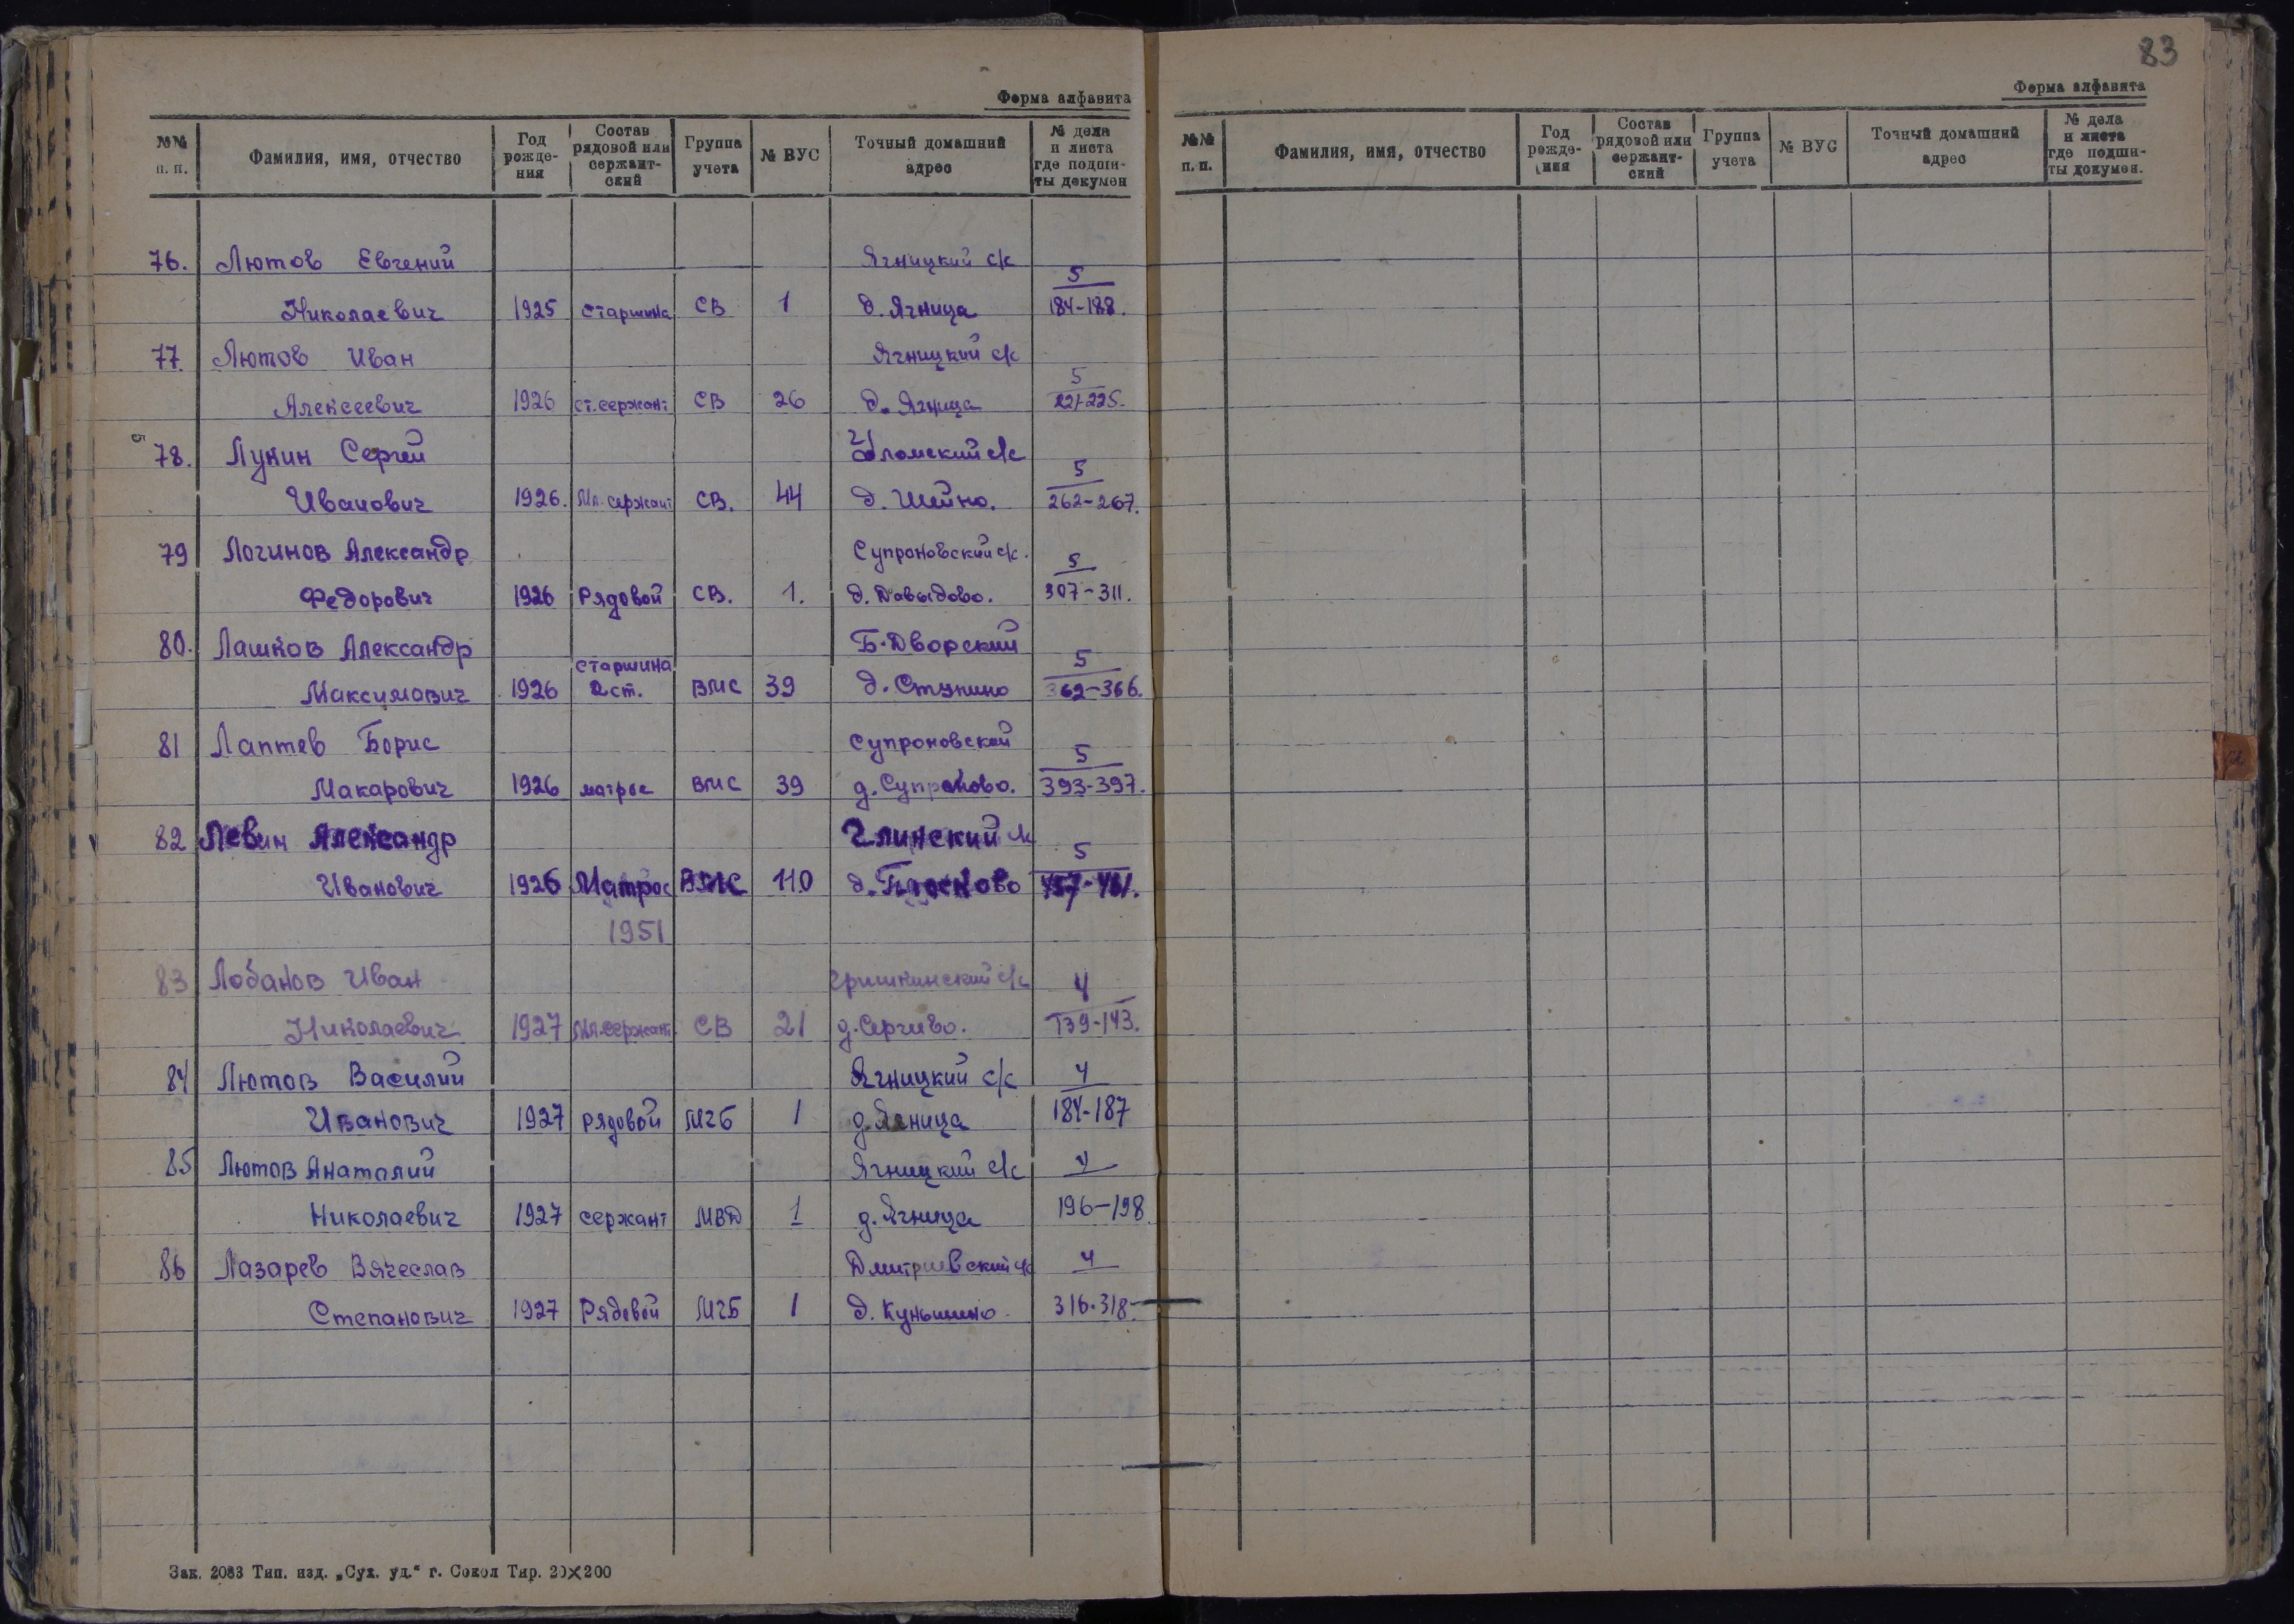 83
Форма алфавита
№№ п. п. Фамилия, имя, отчество Год рожде- ния Состав рядовой или сержант- ский Группа учета № ВУС Точный домашний адрес № дела и листа где подши- ты докумен
76. Лютов Евгений Ягницкий с/с 5
Николаевич 1925 старшина СВ 1 д. Ягница 184-188.
77. Лютов Иван Ягницкий с/с 5
Алексеевич 1926 ст. сержант СВ 26 д. Ягница 221-225.
78. Лунин Сергей Уломский с/с 5
Иванович 1926. Мл. сержант СВ. 44 д. Шейно. 262-267.
79 Логинов Александр Супроновский с/с. 5
Федорович 1926 Рядовой СВ. 1. д. Давыдово. 307-311.
80. Лашков Александр Б. Дворский 5
старшина
Максимович 1926 2 ст. ВМС 39 д. Ступино 362-366.
81 Лаптев Борис Супроновский 5
Макарович 1926 матрос ВМС 39 д. Супроново. 393-397.
82 Левин Александр Глинский с/с 5
Иванович 1926 Матрос ВМС 110 д. 457-461.
1951
83 Лобанов Иван Гришкинский с/с 4
Николаевич 1927 Мл. сержант СВ 21 д. Сергеево. 139-143.
84 Лютов Василий Ягницкий с/с 4
Иванович 1927 рядовой МГБ 1 д. Ягница 184-187
85 Лютов Анатолий Ягницкий с/с 4
Николаевич 1927 сержант МВД 1 д. Ягница 196-198.
86 Лазарев Вячеслав Дмитриевский с/с 4
Степанович 1927 Рядовой МГБ 1 д. Куньшино. 316-318.
Зак. 2083 Тип. изд. „Сух. уд.“ г. Сокол Тир. 20×200
Форма алфавита
№№ п. п. Фамилия, имя, отчество Год рожде- ния Состав рядовой или сержант- ский Группа учета № ВУС Точный домашний адрес № дела и листа где подши- ты докумен.